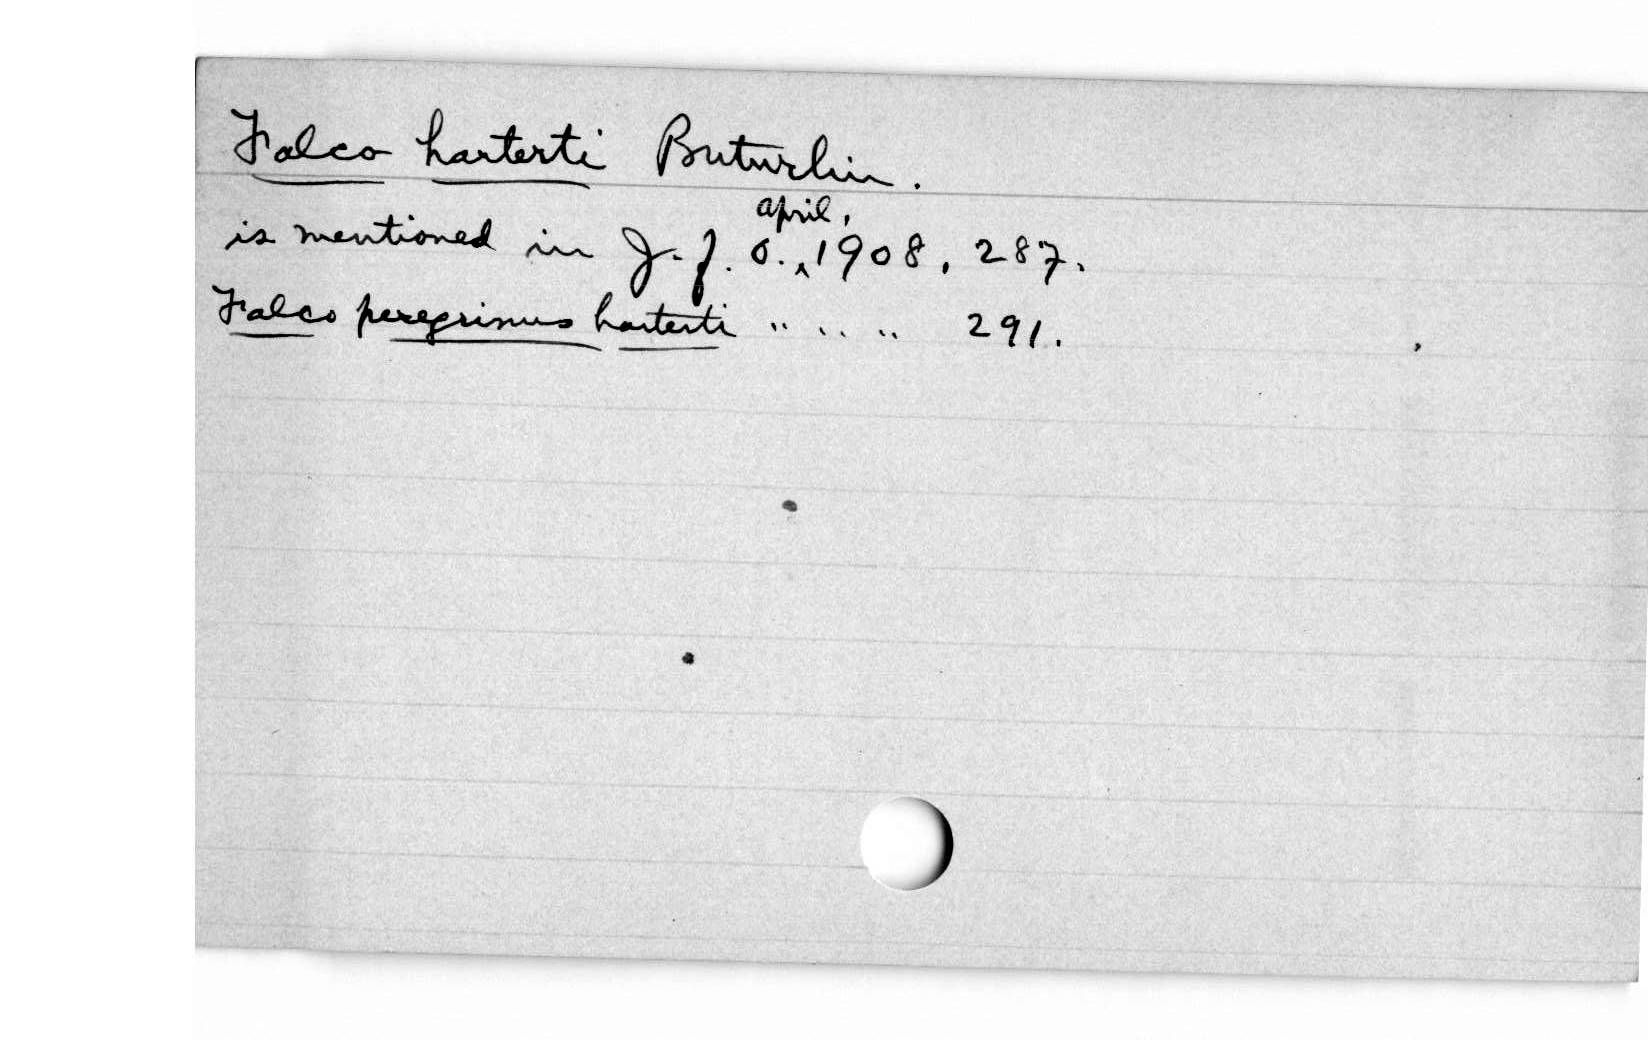 Falco harterti Buturlin.
is mentioned in J. f. O., April, 1908, 287.
Falco peregrinus harterti " " " 291.